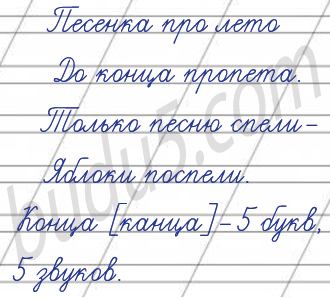 Песенка про лето
До конца пропета.
Только песню спели –
Яблоки поспели.
Конца [канца] – 5 букв,
5 звуков.
budu5.com